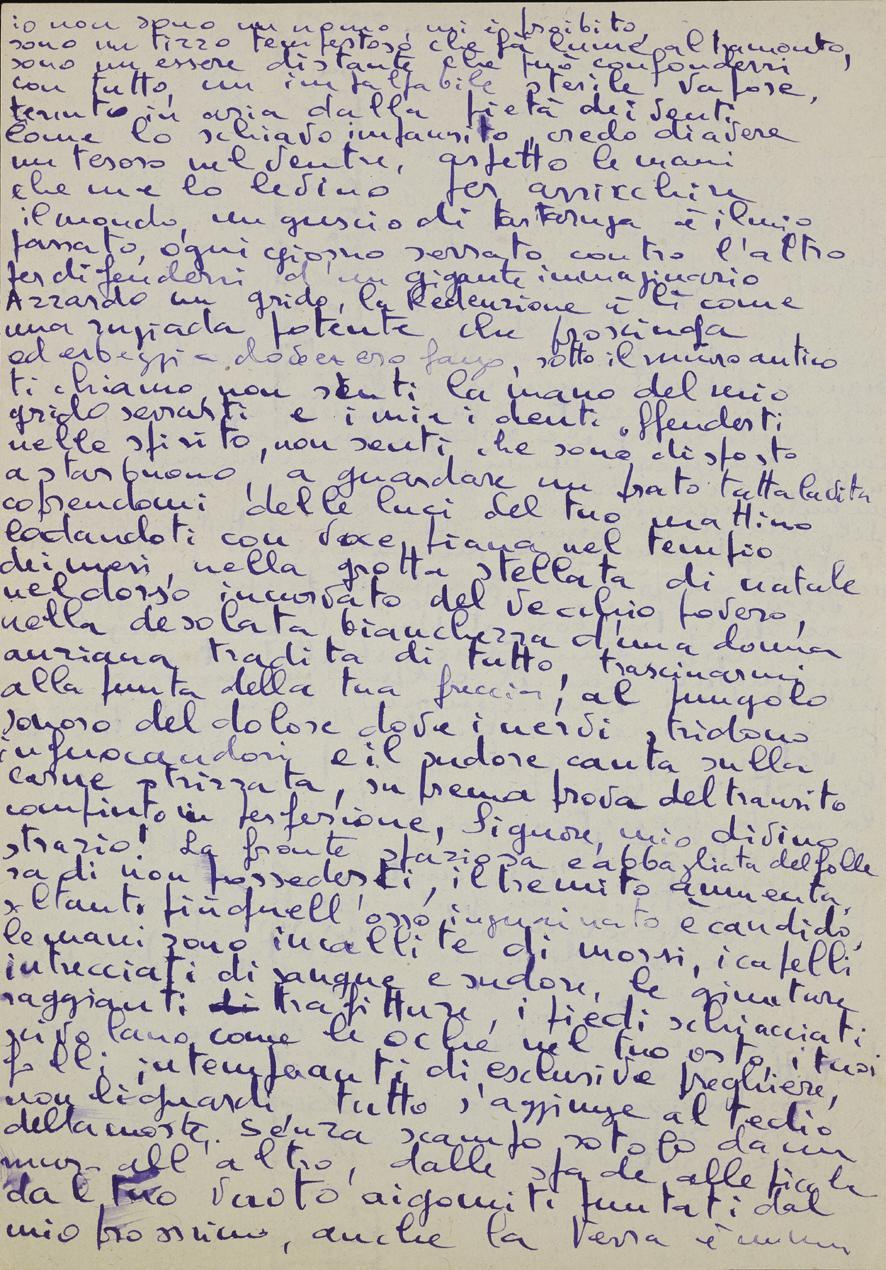 io non sono un uomo, mi è proibito,
sono un tizzo tempestoso che fa lume al tramonto,
sono un essere distante che può confondersi
con tutto, un impalpabile sterile vapore,
tenuto in aria dalla pietà dei venti.
Come lo schiavo impaurito, credo di avere
un tesoro nel ventre, aspetto le mani
che me lo levino per arricchire
il mondo, un guscio di tartaruga è il mio
passato, ogni giorno serrato contro l'altro
per difendersi d'un gigante immaginario
Azzardo un grido, la Redenzione è lì come
una rugiada potente che prosciuga
ed erbeggia dove ero fango, sotto il muro antico
ti chiamo non senti la mano del mio
grido serrarti e i miei denti offenderti
nello spirito, non senti che sono disposto
a star buono, a guardare un prato tutta la vita
coprendomi delle luci del tuo mattino
lodandoti con voce piana nel tempio
dei mesi, nella grotta stellata di natale
nel dorso incurvato del vecchio povero,
nella desolata bianchezza d'una donna
anziana tradita di tutto, trascinarmi
alla punta della tua freccia, al pungolo
sonoro del dolore dove i nervi stridono
infuocandosi e il sudore canta sulla
carne strizzata, suprema prova del transito
compiuto in perfezione, Signore, mio divino
strazio! La fronte spaziosa e abbagliata del folle
sa di non possederti, il tremito aumenta,
quell'osso inguainato è candido,
le mani sono incallite di morsi, i capelli
intrecciati di sangue e sudore, le giunture
raggianti trafitture, i piedi schiacciati
come le oche nel tuo orto, i tuoi
polli intemperanti di esclusive preghiere,
non li guardi, tutto s'aggiunge al tedio
della morte. Senza scampo rotolo da un
muro all'altro, dalle spade alle
dal tuo vuoto ai gomiti puntati dal
mio prossimo, anche la terra è